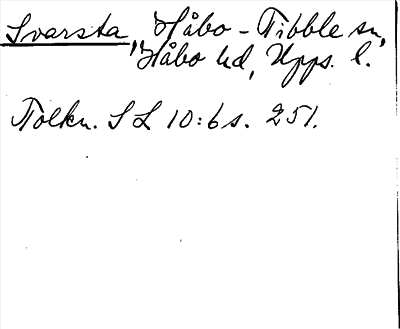 Svarsta, Håbo-Tibble sn,
Håbo hd, Upps. l.
Tolkn. SL 10:6 s. 251.